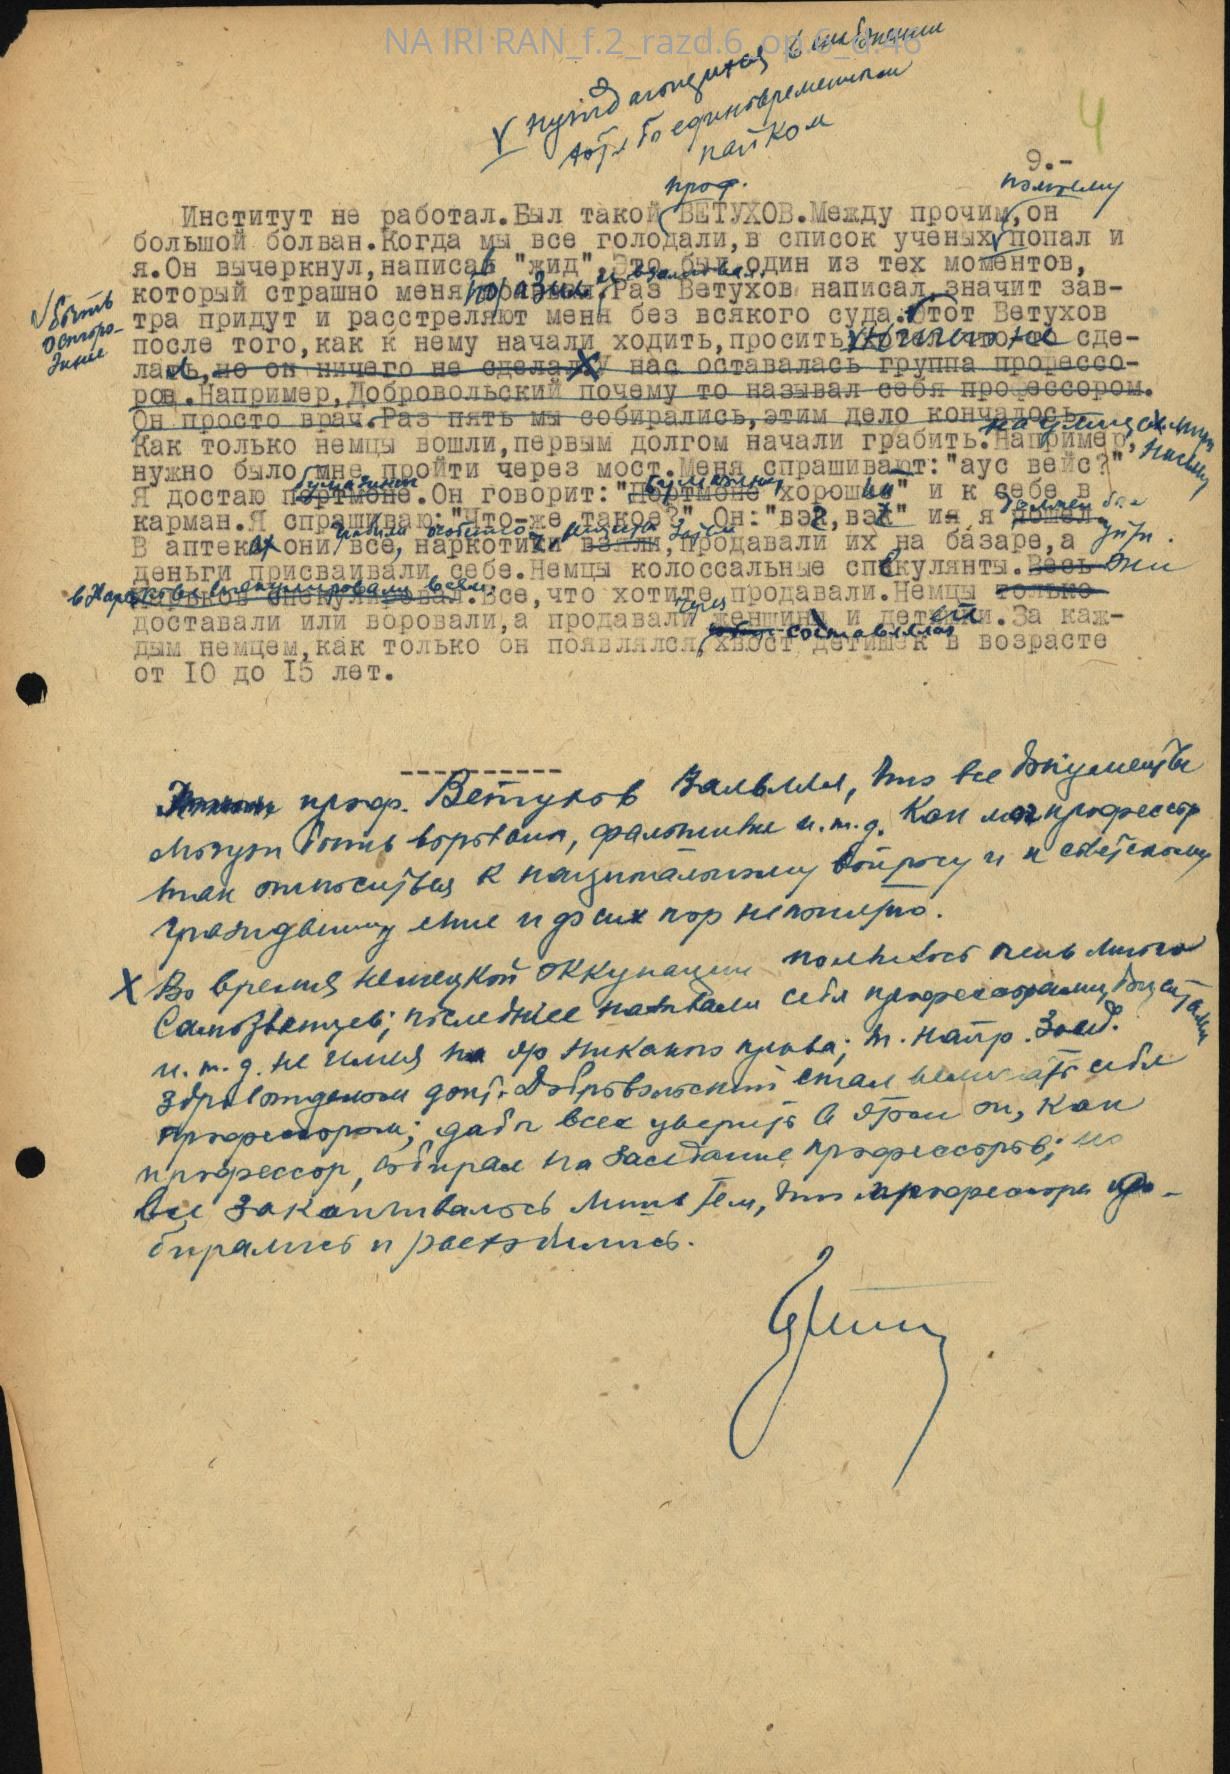 NA IRI RAN_f.2_razd.6_op.6_d.46
V нуждающихся в снабжении
хотя бы единовременным
пайком
4
9.-
проф.
Институт не работал.Был такой ВЕТУХОВ.Между прочим,он
большой болван.Когда мы все голодали,в список ученых V попал и
я.Он вычеркнул,написав "жид". Это был один из тех моментов,
который страшно меня поразил и взволновал. Раз Ветухов написал,значит зав-
V быть
осторо-
жнее
тра придут и расстреляют меня без всякого суда. Этот Ветухов
после того,как к нему начали ходить,просить, что-то сде-
лать,но он ничего не сделал. X У нас оставалась группа профессо-
ров.Например,Добровольский почему то называл себя профессором.
Он просто врач.Раз пять мы собирались,этим дело кончалось.
Как только немцы вошли,первым долгом начали грабить.Например,
нужно было мне пройти через мост.Меня спрашивают:"аус вейс?"
бумажник
Я достаю портмоне.Он говорит:"Портмоне хороший" и к себе в
карман.Я спрашиваю:"Что-же такое?" Он:"вэк,вэк" и я должен был уйти.
В аптеках они все, наркотики взяли,продавали их на базаре,а
деньги присваивали себе.Немцы колоссальные спекулянты. Весь Они
в Харькове спекулировали всем.
Харьков спекулировал.Все,что хотите,продавали.Немцы только
доставали или воровали,а продавали через женщин и детей.За каж-
дым немцем,как только он появлялся, составлялся хвост детишек в возрасте
от 10 до 15 лет.
----------
проф. Ветухов заявлял, что все документы
могут быть ворованы, фальшивые и.т.д. Как мог профессор
так относиться к национальному вопросу и к советскому
гражданину мне и до сих пор непонятно.
X Во время немецкой оккупации появилось очень много
самозванцев; последние называли себя профессорами, доцентами
и.т.д. не имея на это никакого права; т. напр. Завед.
здравотделом докт. Добровольский стал величать себя
профессором; дабы всех уверить в этом он, как
профессор, собирал на заседание профессоров; но
все заканчивалось лишь тем, что профессора со-
бирались и расходились.